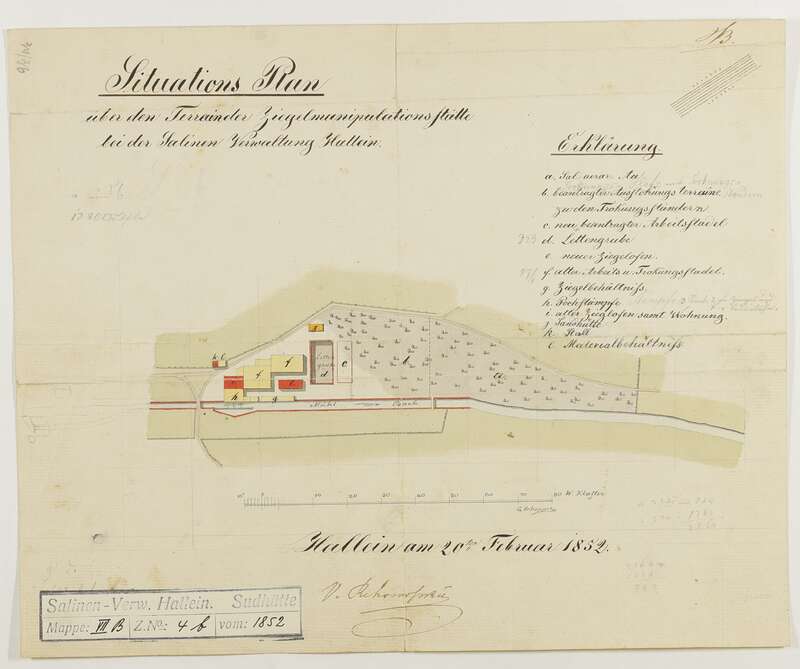 4/B.
Situations Plan
über den Terrain der Ziegelmanipulationsstätte
bei der Salinen Verwaltung Hallein.
Erklärung.
a. Sal. aerar. Au
b. beantragter Ausstokungs terraine
zu den Trokungsständern
c. neu beantragter Arbeitsstadel
d. Lettengrube
e. neuer Ziegelofen.
f. alter Arbeits u. Trokungsstadel.
g. Ziegelbehältniss
h. Pochstämpfe
i. alter Zieglofen samt Wohnung.
j. Sandhütte
k. Stall
l. Materialbehältniss
k l
f
f
d
c
b
a
h
i
g
Mühl Bach
10 10 20 30 40 50 60 70 80 W. Klafter
Hallein am 20ten Februar 1852.
Salinen-Verw. Hallein. Sudhütte
Mappe: VII B Z.No: 4 b vom: 1852